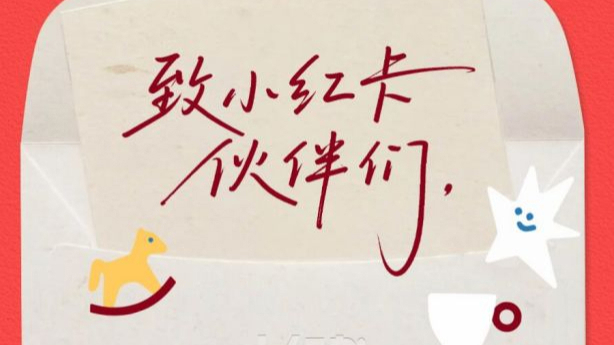 致小红卡
伙伴们，